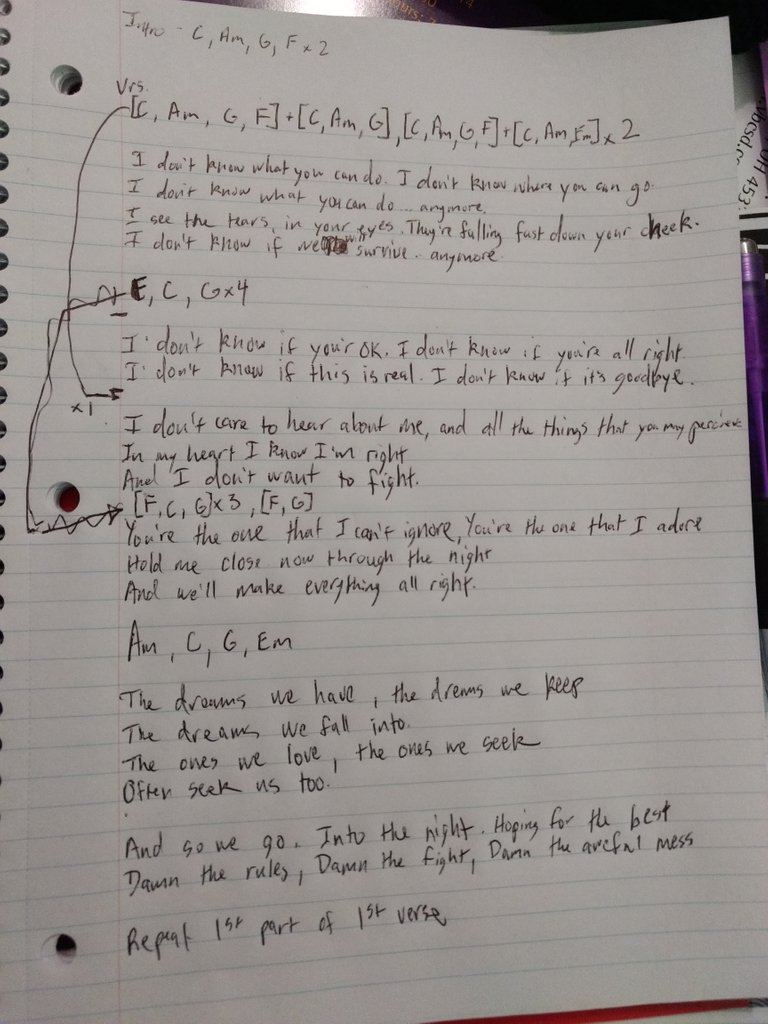 Intro - C, Am, G, F x 2
Vrs.
[C, Am, G, F] + [C, Am, G], [C, Am, G, F] + [C, Am, Em] x 2
I don't know what you can do. I don't know where you can go.
I don't know what you can do... anymore.
I see the tears, in your eyes. They're falling fast down your cheek.
I don't know if we will survive.. anymore.
F, C, G x 4
I don't know if your OK. I don't know if you're all right.
I don't know if this is real. I don't know if it's goodbye.
x1
I don't care to hear about me, and all the things that you may percieve
In my heart I know I'm right
And I don't want to fight.
[F, C, G] x 3, [F, G]
You're the one that I can't ignore, You're the one that I adore
Hold me close now through the night
And we'll make everything all right.
Am, C, G, Em
The dreams we have, the drems we keep
The dreams we fall into.
The ones we love, the ones we seek
Often seek us too.
And so we go. Into the night. Hoping for the best
Damn the rules, Damn the fight, Damn the aweful mess
Repeat 1st part of 1st verse
OH 453: